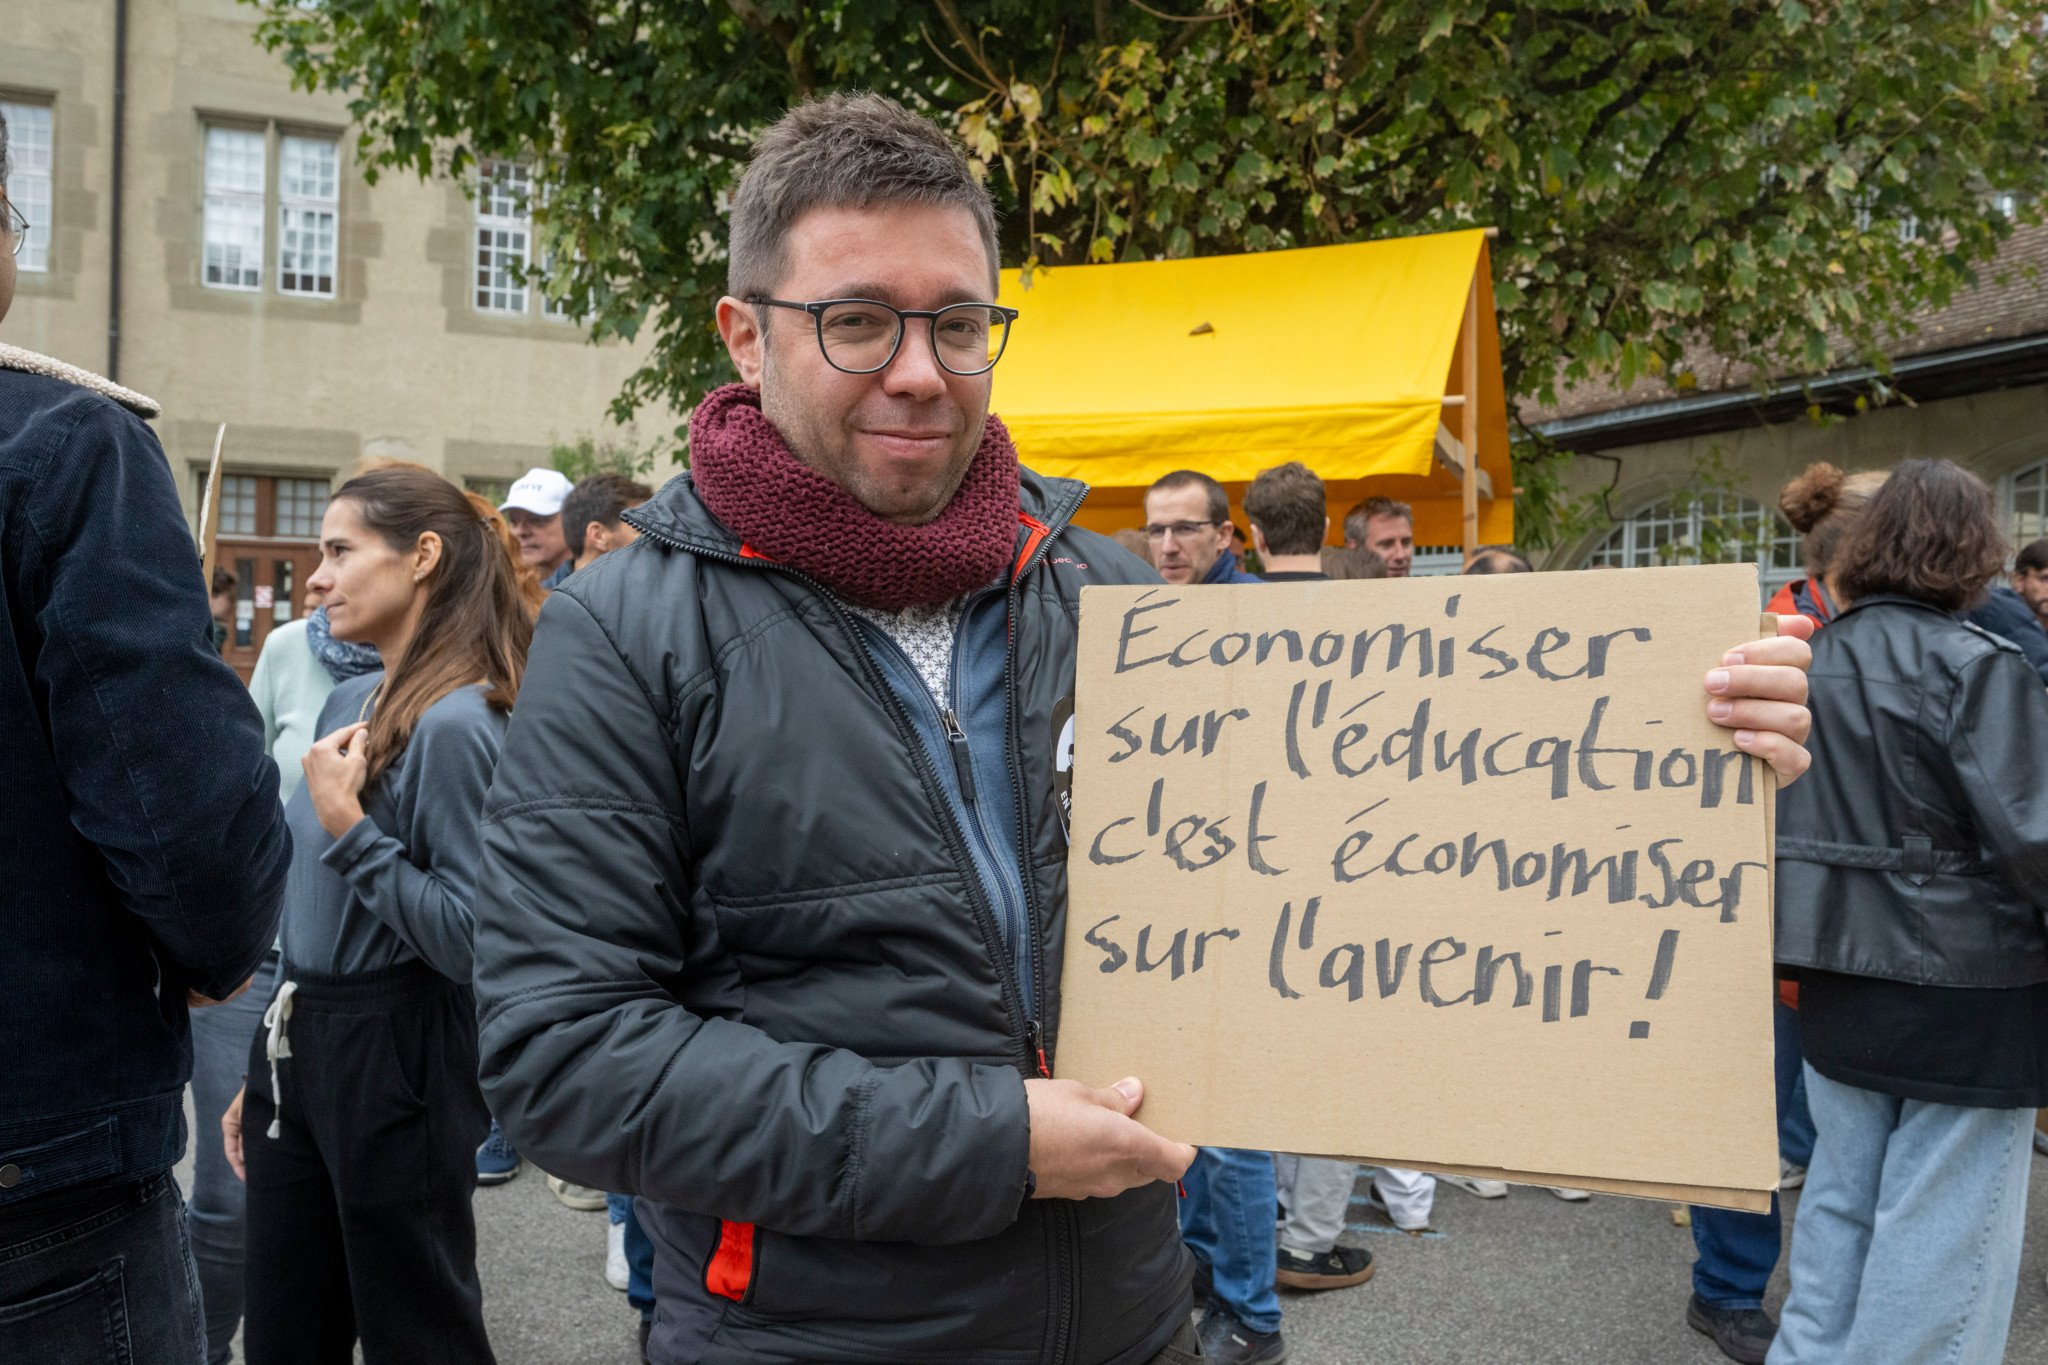 Économiser
sur l'éducation
c'est économiser
sur l'avenir !